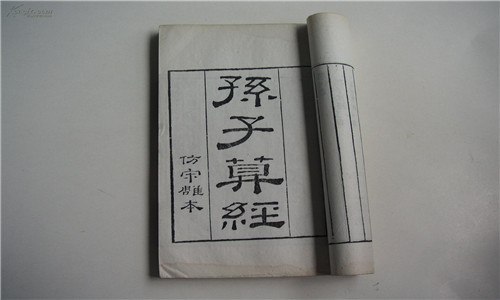 孫子算經
仿宋雕本